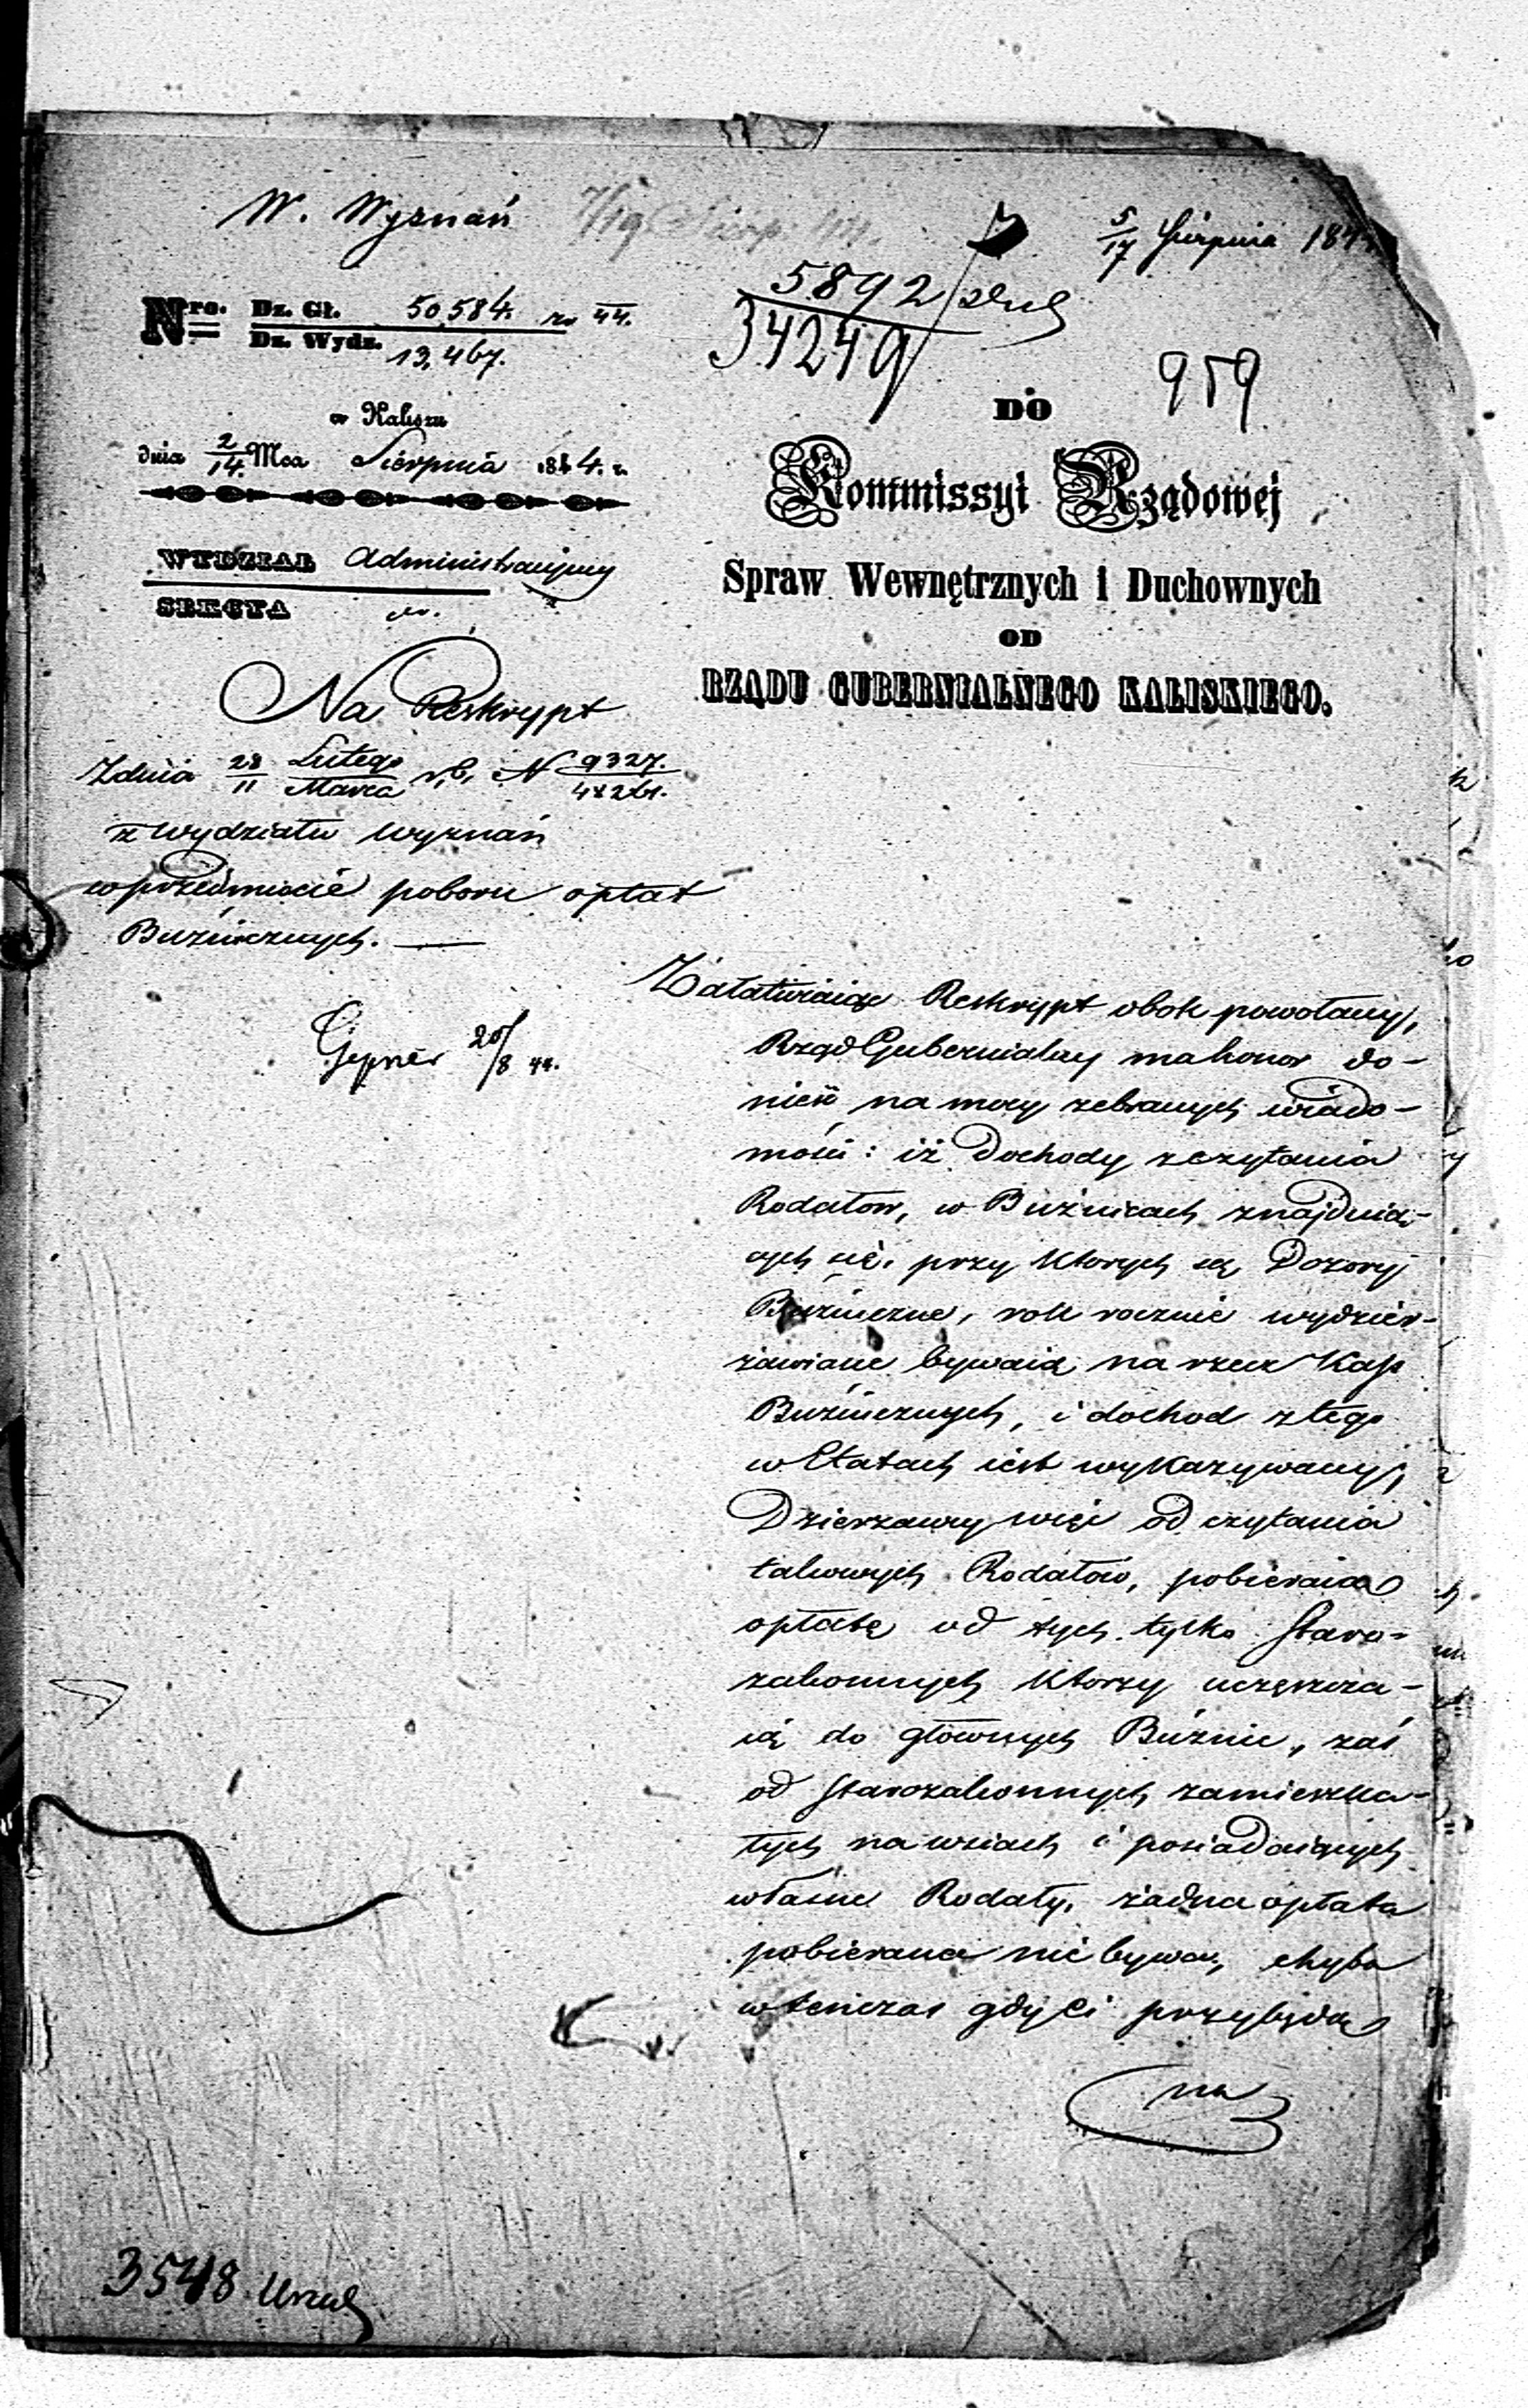 W. Wyznań
5/17 Sierpnia 184
5892
34249
959
Nro. Dz. Gł. 50,584. 44.
Dz. Wydz. 13,467.
w Kaliszu
dnia 2/14 Mca Sierpnia 1844. r.
WYDZIAŁ Administracyjny
SEKCYA
DO
Kommissyi Rządowej
Spraw Wewnętrznych i Duchownych
OD
RZĄDU GUBERNIALNEGO KALISKIEGO.
Na Reskrypt
z dnia 28/11 Lutego/Marca r. b. N 9327.
z Wydziału Wyznań
w przedmiocie poboru opłat
Buźniczych.
20/8 44.
Załatwiaiąc Reskrypt obok powołany,
Rząd Gubernialny ma honor do-
nieść na mocy zebranych wiado-
mości: iż Dochody z czytania
Rodałow, w Buźnicach znajduią-
cych się, przy ktorych są Dozory
Buźnicze, rok rocznie wydzier-
żawiane bywaią na rzecz Kass
Buźniczych, i dochod z tego
w Etatach iest wykazywany;
Dzierzawcy więc od czytania
takowych Rodałów, pobieraią
opłatę od tych tylko Staro-
zakonnych ktorzy uczęszcza-
ią do głownych Buźnic, zaś
od Starozakonnych zamieszka-
łych na wsiach i posiadaiących
własne Rodały, żadna opłata
pobierana nie bywa, chyba
wtenczas gdy ci przybędą
na
3548